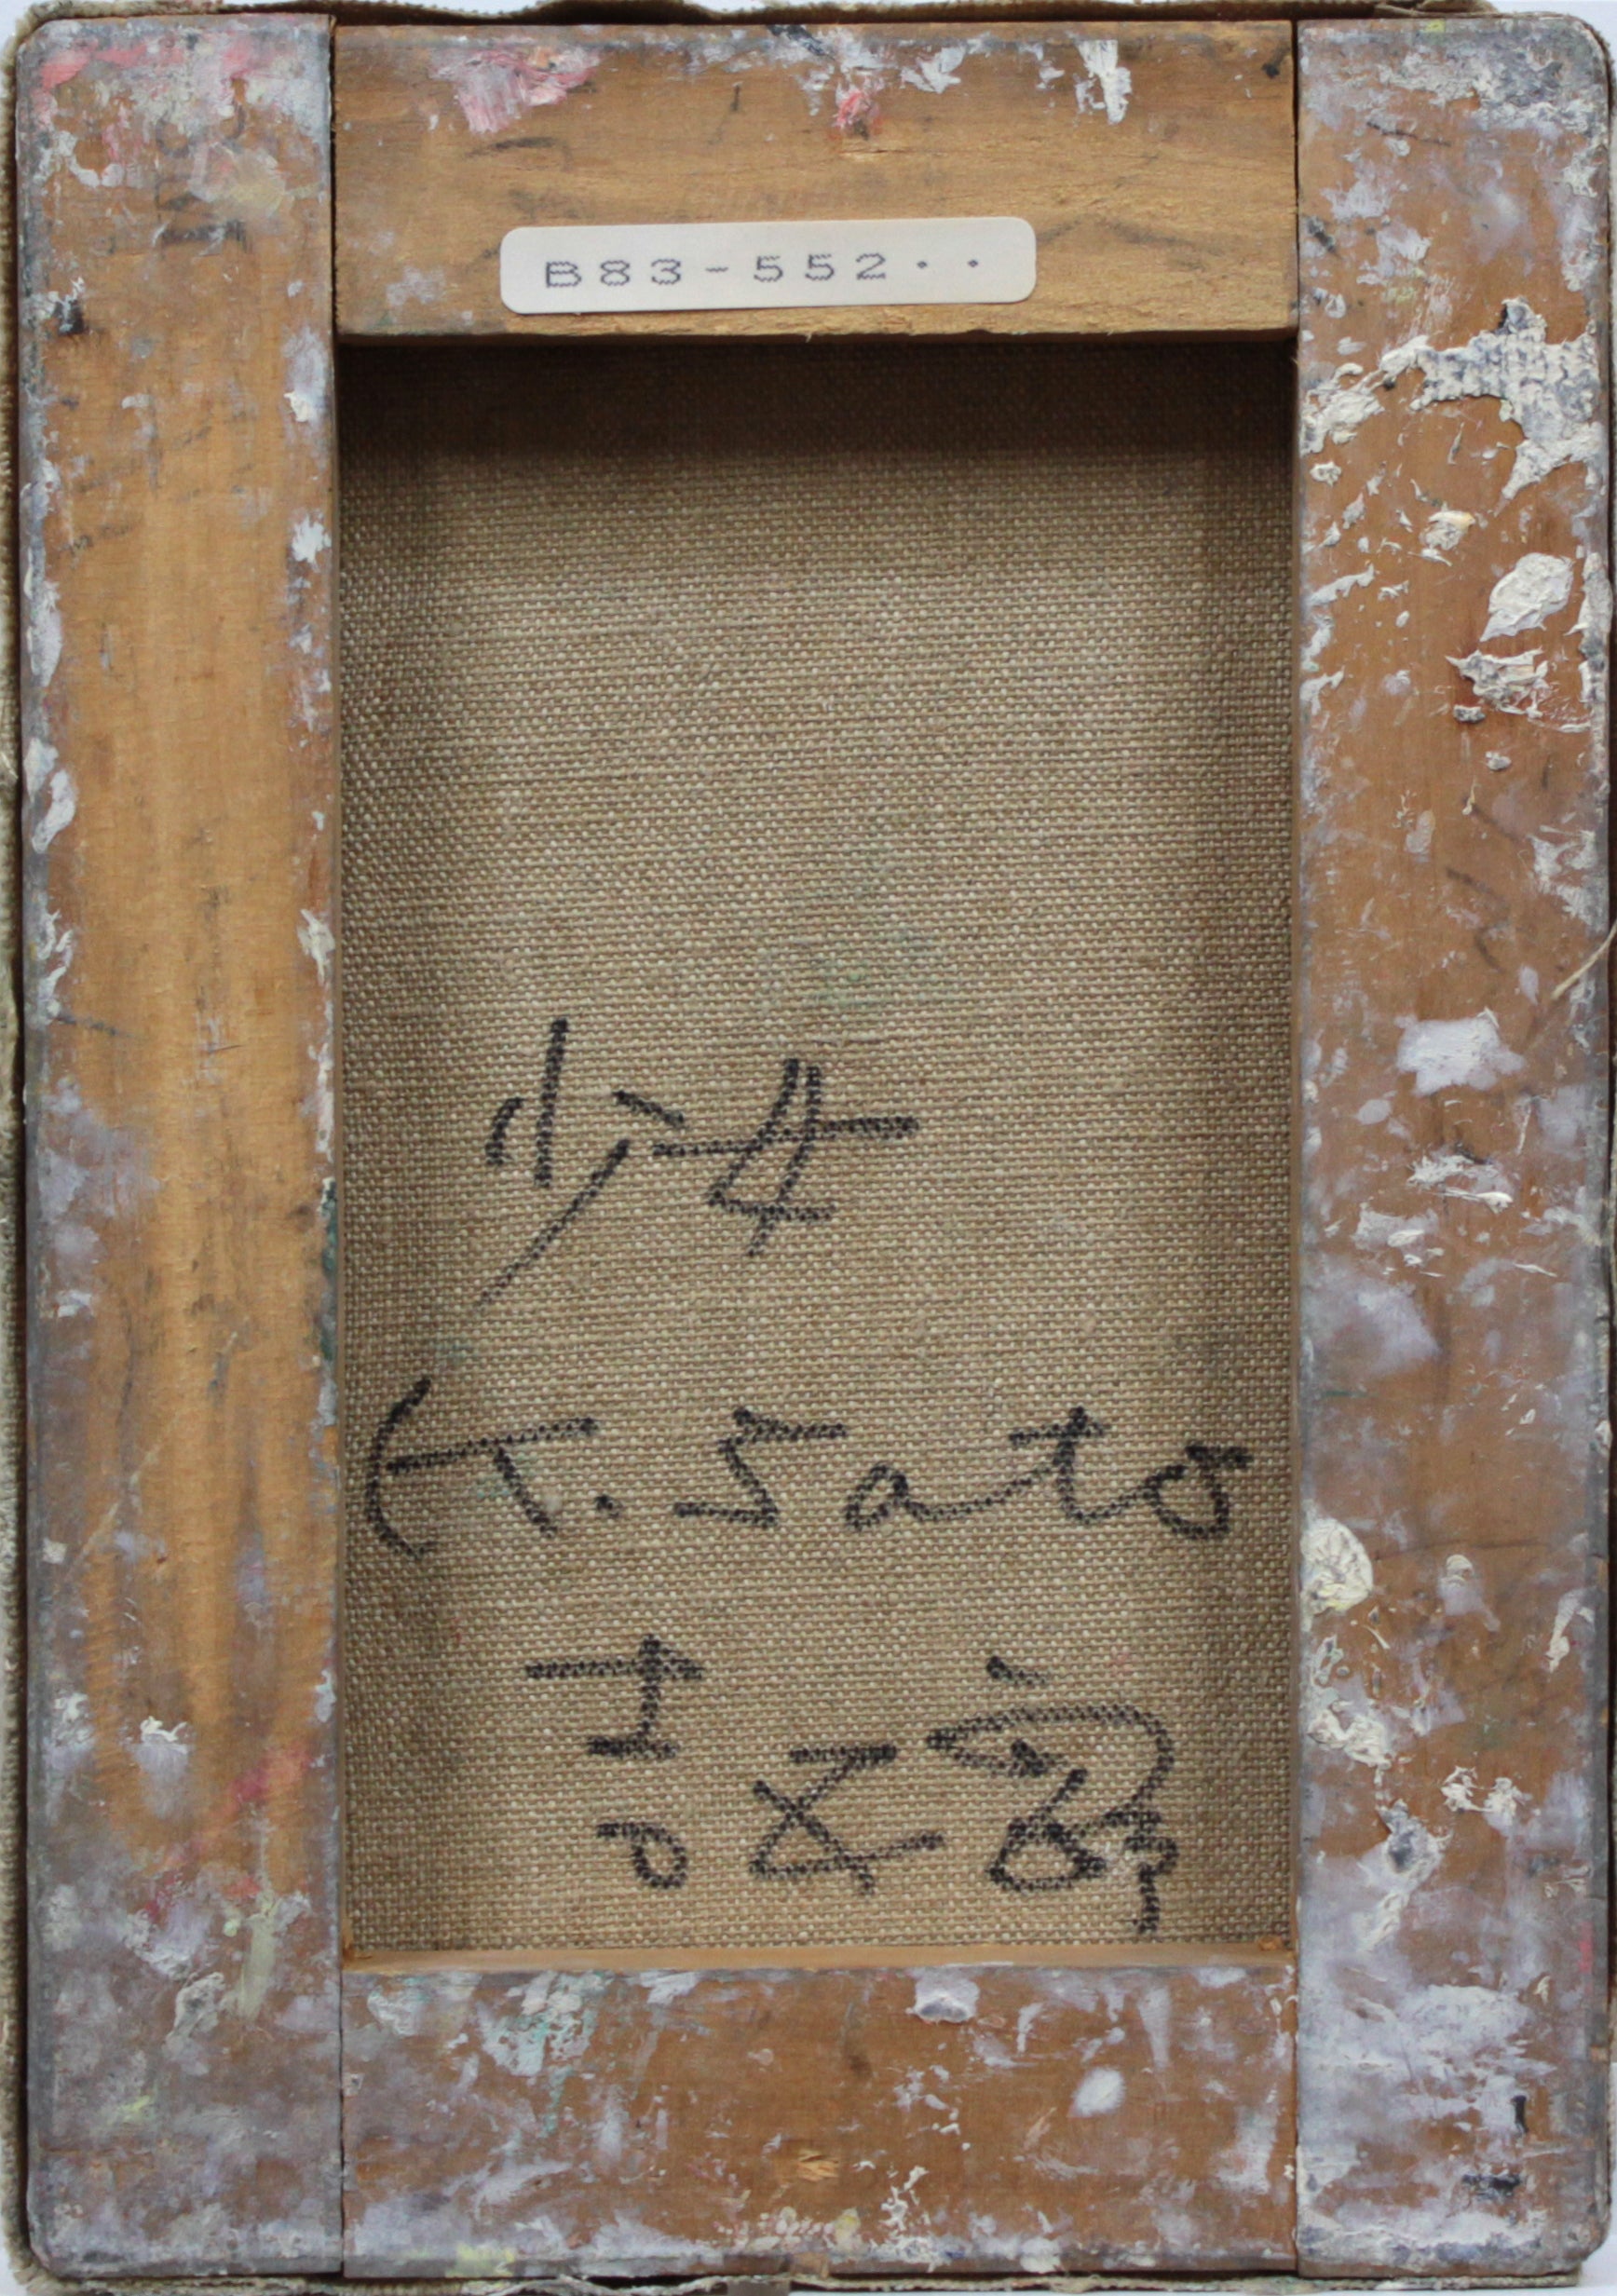 B83-552··
少女
(T. Sato